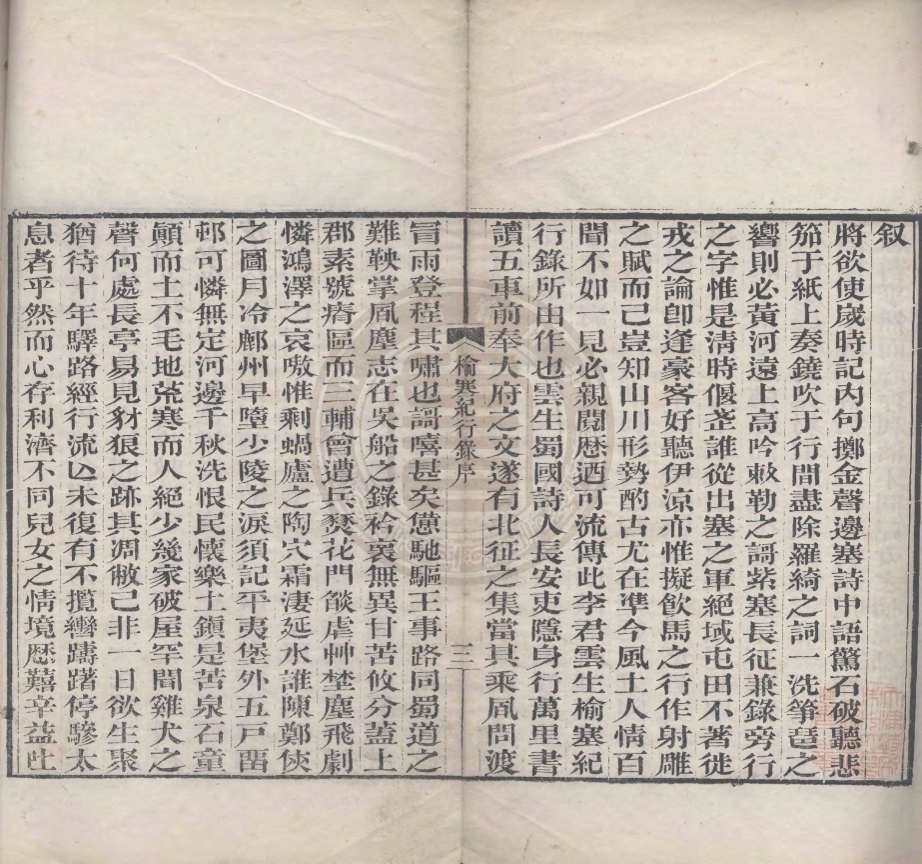 叙
將欲使歲時記內句擲金聲邊塞詩中語驚石破聽悲
笳于紙上奏鐃吹于行間盡除羅綺之詞一洗箏琶之
響則必黃河遠上高吟敕勒之謌紫塞長征兼錄旁行
之字惟是清時偃莅誰從出塞之軍絕域屯田不著徙
戎之論卽逢豪客好聽伊涼亦惟擬飮馬之行作射雕
之賦而已豈知山川形勢酌古尤在準今風土人情百
聞不如一見必親閱歷迺可流傳此李君雲生榆塞紀
行錄所由作也雲生蜀國詩人長安吏隱身行萬里書
讀五車前奉大府之文遂有北征之集當其乘風問渡
榆塞紀行錄序
三
冒雨登程其嘯也謌嘻甚矣憊馳驅王事路同蜀道之
難鞅掌風塵志在吳船之錄衿裒無異甘苦攸分蓋上
郡素號瘠區而三輔會遭兵燹花門燄虐艸埜塵飛劇
憐鴻澤之哀嗷惟剩蝸廬之陶穴霜淒延水誰陳鄭俠
之圖月冷鄜州早墮少陵之淚須記平夷堡外五戸西
邨可憐無定河邊千秋洗恨民懷樂土鎭是苦泉石童
顚而土不毛地荒寒而人絕少幾家破屋罕聞雞犬之
聲何處長亭易見豺狼之跡其凋敝已非一日欲生聚
猶待十年驛路經行流亾未復有不攬轡躊躇停驂太
息者乎然而心存利濟不同兒女之情境歷囏辛益壯